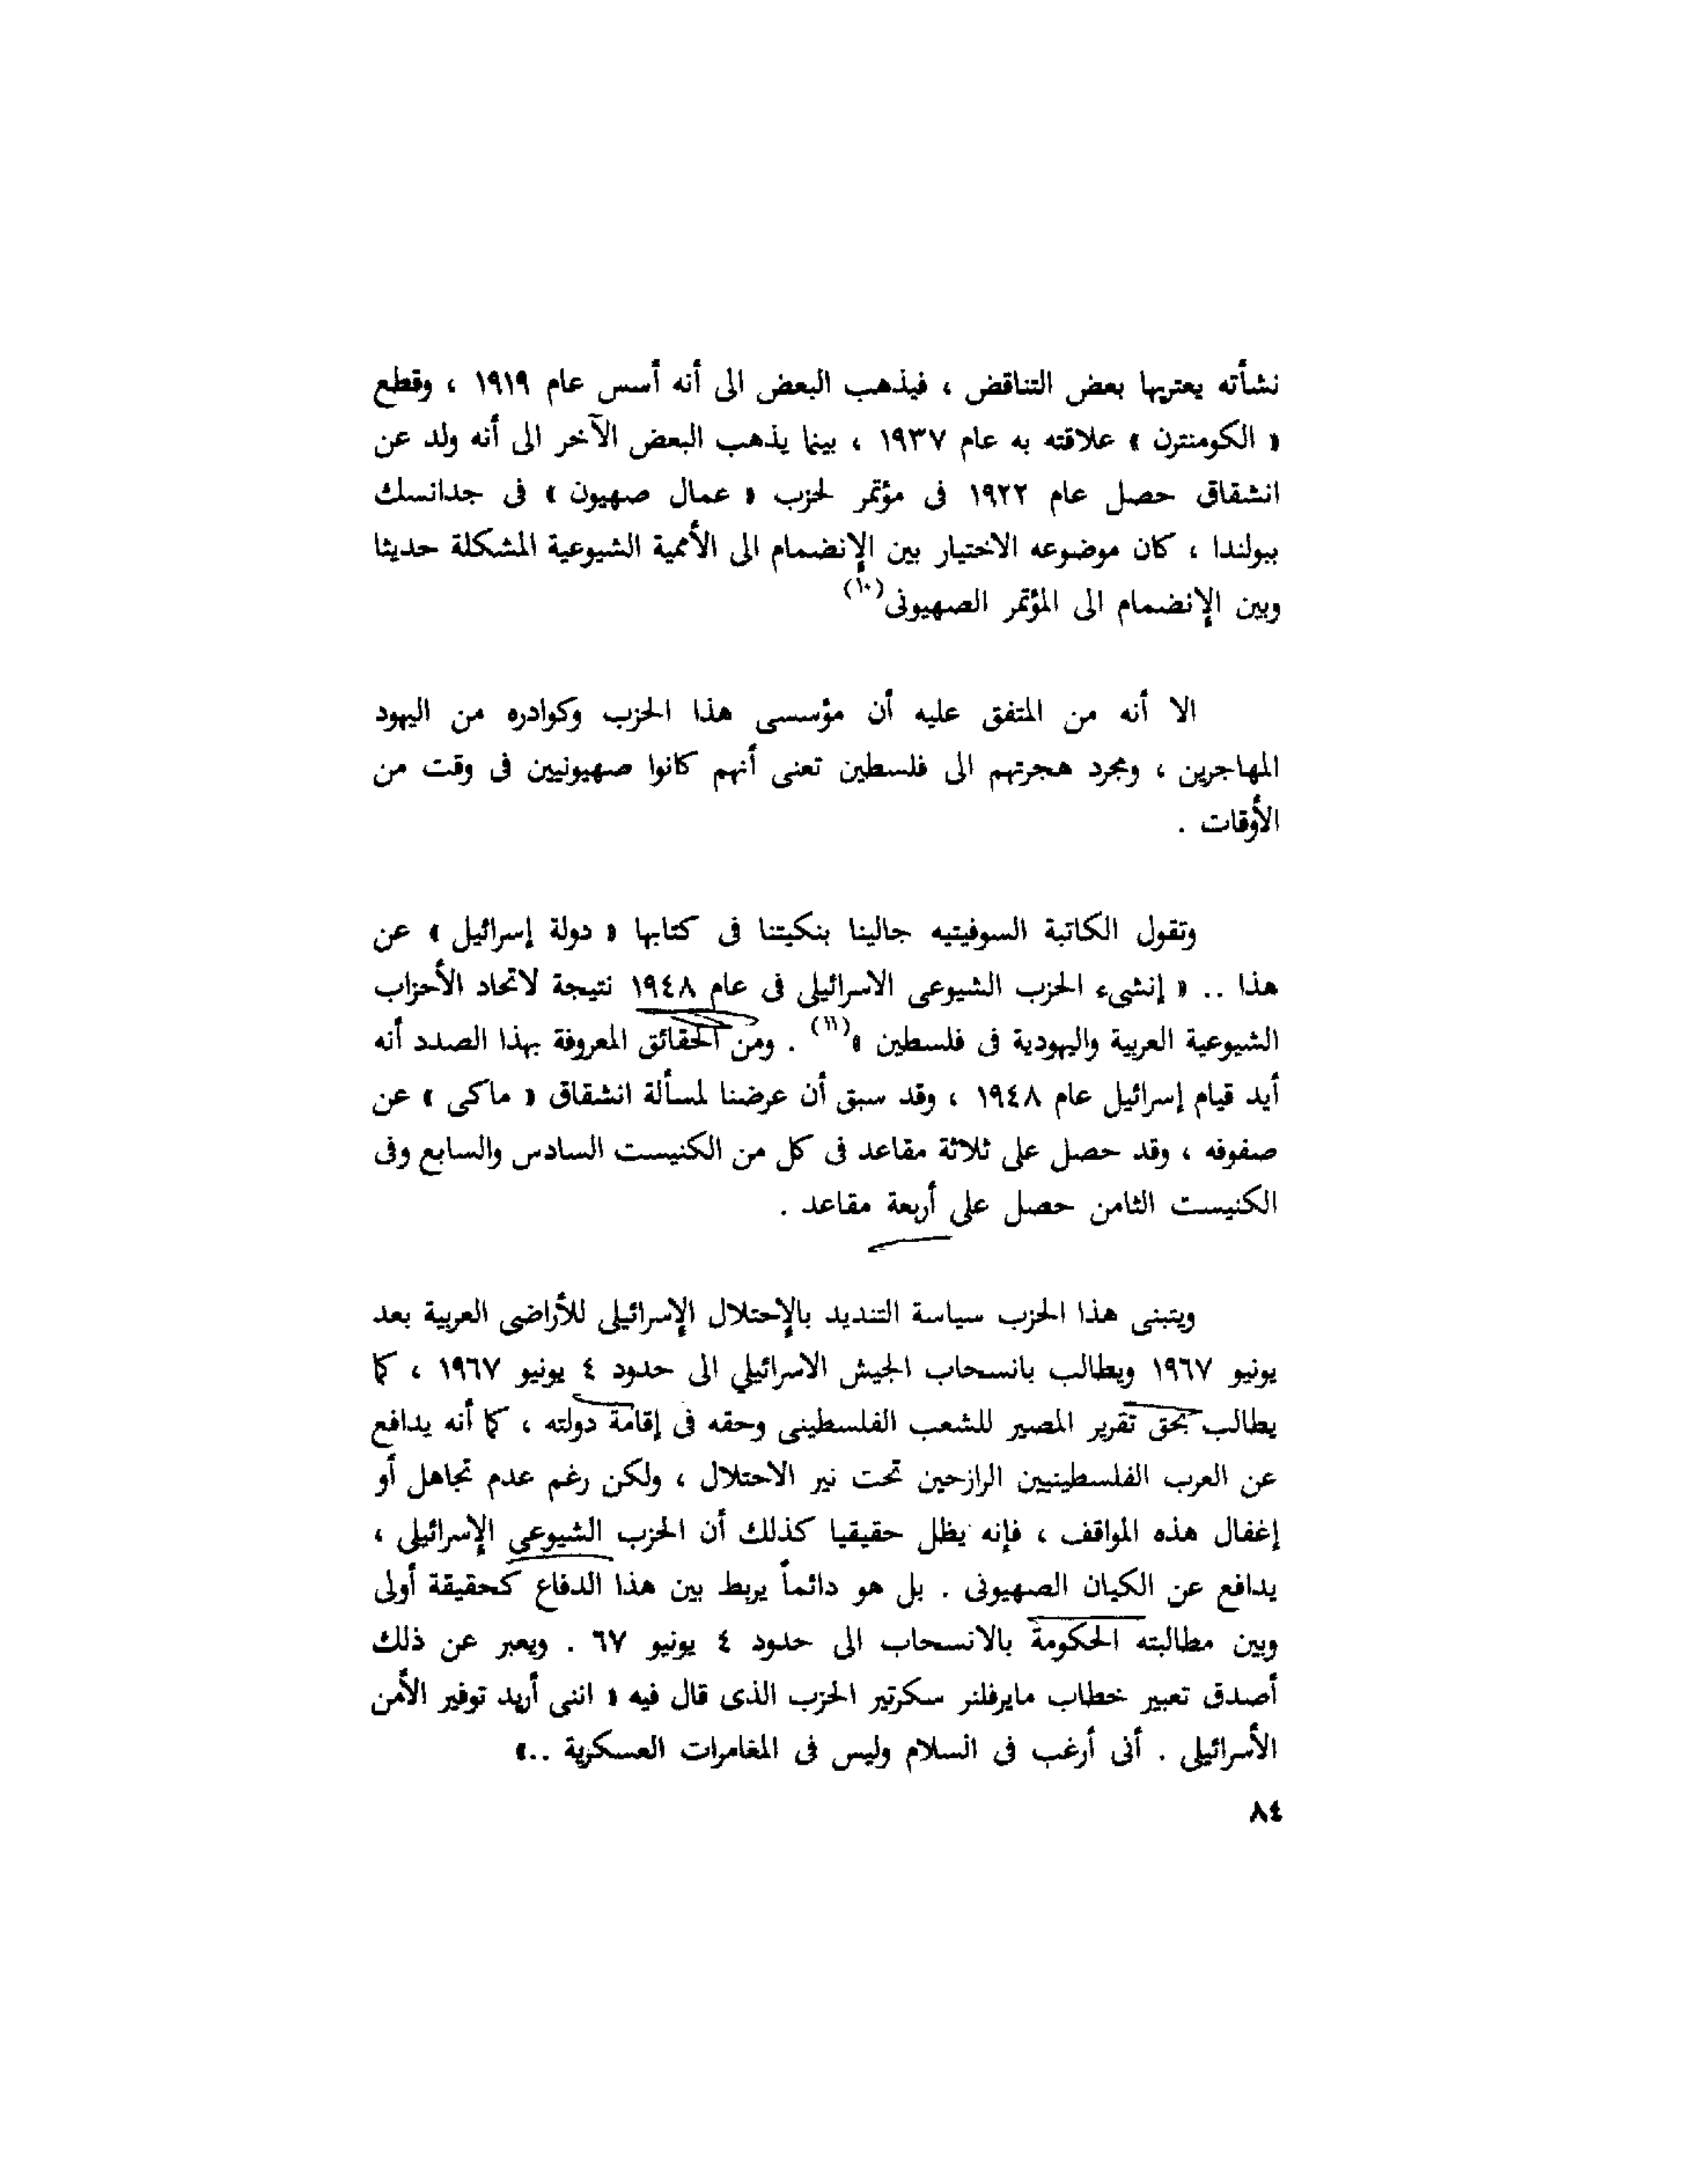 نشأته يعتريها بعض التناقض ، فيذهب البعض الى أنه أسس عام ١٩١٩ ، وقطع
« الكومنترن » علاقته به عام ١٩٣٧ ، بينما يذهب البعض الآخر الى أنه ولد عن
انشقاق حصل عام ١٩٢٢ فى مؤتمر لحزب « عمال صهيون » فى جدانسك
ببولندا ، كان موضوعه الاختيار بين الإنضمام الى الأممية الشيوعية المشكلة حديثا
وبين الإنضمام الى المؤتمر الصهيونى(١٠)
الا أنه من المتفق عليه أن مؤسسى هذا الحزب وكوادره من اليهود
المهاجرين ، ومجرد هجرتهم الى فلسطين تعنى أنهم كانوا صهيونيين فى وقت من
الأوقات .
وتقول الكاتبة السوفيتيه جالينا بنكيتنا فى كتابها « دولة إسرائيل » عن
هذا .. « إنشىء الحزب الشيوعى الاسرائيلى فى عام ١٩٤٨ نتيجة لاتحاد الأحزاب
الشيوعية العربية واليهودية فى فلسطين »(١١) . ومن الحقائق المعروفة بهذا الصدد أنه
أيد قيام إسرائيل عام ١٩٤٨ ، وقد سبق أن عرضنا لمسألة انشقاق « ماكى » عن
صفوفه ، وقد حصل على ثلاثة مقاعد فى كل من الكنيست السادس والسابع وفى
الكنيست الثامن حصل على أربعة مقاعد .
ويتبنى هذا الحزب سياسة التنديد بالإحتلال الإسرائيلى للأراضى العربية بعد
يونيو ١٩٦٧ ويطالب بانسحاب الجيش الاسرائيلي الى حدود ٤ يونيو ١٩٦٧ ، كما
يطالب بحق تقرير المصير للشعب الفلسطينى وحقه فى إقامة دولته ، كما أنه يدافع
عن العرب الفلسطينيين الرازحين تحت نير الاحتلال ، ولكن رغم عدم تجاهل أو
إغفال هذه المواقف ، فإنه يظل حقيقيا كذلك أن الحزب الشيوعى الإسرائيلى ،
يدافع عن الكيان الصهيونى . بل هو دائماً يربط بين هذا الدفاع كحقيقة أولى
وبين مطالبته الحكومة بالانسحاب الى حدود ٤ يونيو ٦٧ . ويعبر عن ذلك
أصدق تعبير خطاب مايرفلنر سكرتير الحزب الذى قال فيه « اننى أريد توفير الأمن
الأسرائيلى . أنى أرغب فى السلام وليس فى المغامرات العسكرية ..»
٨٤